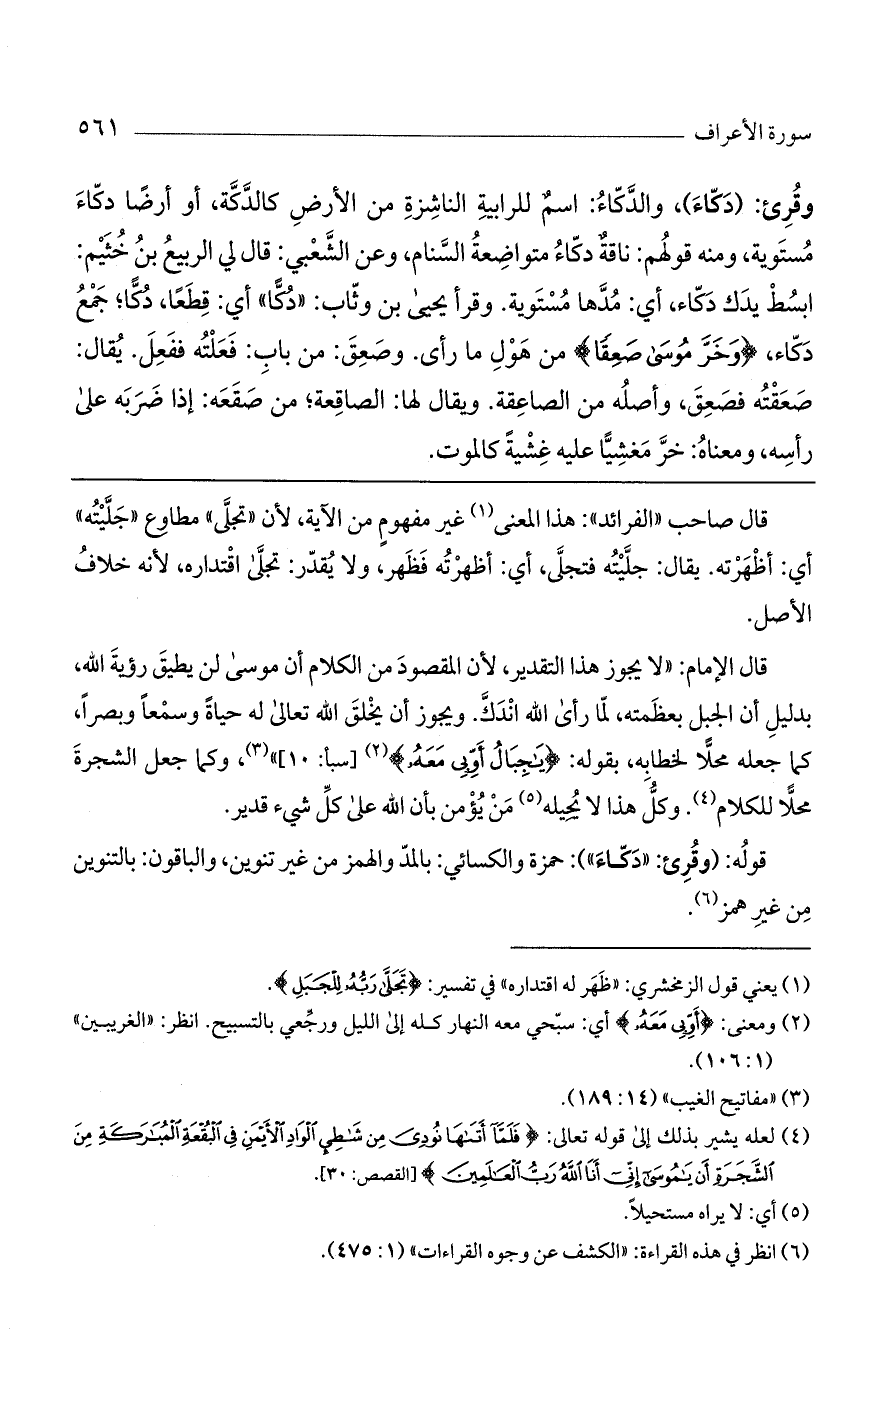 سورة الأعراف ٥٦١
وقُرِئ: (دَكّاءَ)، والدَّكّاءُ: اسمٌ للرابيةِ الناشِزةِ من الأرضِ كالدَّكَّة، أو أرضًا دكّاءَ
مُستَوية، ومنه قولُهم: ناقةٌ دكّاءُ متواضِعةُ السَّنام، وعن الشَّعْبي: قال لي الربيعُ بنُ خُثَيْم:
ابسُطْ يدَك دَكّاء، أي: مُدَّها مُسْتَوية. وقرأ يحيىٰ بن وثّاب: «دُكًّا» أي: قِطَعًا، دُكًّا؛ جَمْعُ
دكّاء، ﴿وَخَرَّ مُوسَىٰ صَعِقًا﴾ من هَوْلِ ما رأى. وصَعِقَ: من بابِ: فَعَلْتُه ففَعِلَ. يُقال:
صَعَقْتُه فصَعِقَ، وأصلُه من الصاعِقة. ويقال لها: الصاقِعة؛ من صَقَعَه: إذا ضَرَبَه علىٰ
رأسِه، ومعناهُ: خرَّ مَغشِيًّا عليه غِشْيةً كالموت.
قال صاحب «الفرائد»: هذا المعنى(١) غير مفهومٍ من الآية، لأن «تجلَّى» مطاوع «جَلَّيْتُه»
أي: أظْهَرْته. يقال: جلَّيْتُه فتجلَّى، أي: أظهرْتُه فَظَهر، ولا يُقدّر: تجلَّىٰ اقْتداره، لأنه خلافُ
الأصل.
قال الإمام: «لا يجوز هذا التقدير، لأن المقصودَ من الكلام أن موسىٰ لن يطيقَ رؤيةَ الله،
بدليلِ أن الجبل بعظَمته، لمّا رأىٰ الله انْدَكَّ. ويجوز أن يخْلقَ الله تعالىٰ له حياةً وسمْعاً وبصراً،
كما جعله محلًّا لخطابِه، بقوله: ﴿يَٰجِبَالُ أَوِّبِى مَعَهُۥ﴾(٢) [سبأ: ١٠]»(٣)، وكما جعل الشجرةَ
محلًّا للكلام(٤). وكلُّ هذا لا يُحِيله(٥) مَنْ يُؤْمن بأن الله علىٰ كلِّ شيء قدير.
قولُه: (وقُرِئ: «دَكّاءَ»): حمزة والكسائي: بالمدّ والهمز من غير تنوين، والباقون: بالتنوين
مِن غيرِ همز(٦).
(١) يعني قول الزمخشري: «ظَهَر له اقتداره» في تفسير: ﴿تَجَلَّىٰ رَبُّهُۥ لِلْجَبَلِ﴾.
(٢) ومعنى: ﴿أَوِّبِى مَعَهُۥ﴾ أي: سبّحي معه النهار كله إلىٰ الليل ورجِّعي بالتسبيح. انظر: «الغريبين»
(١: ١٠٦).
(٣) «مفاتيح الغيب» (١٤: ١٨٩).
(٤) لعله يشير بذلك إلىٰ قوله تعالى: ﴿فَلَمَّآ أَتَىٰهَا نُودِىَ مِن شَٰطِئِ ٱلْوَادِ ٱلْأَيْمَنِ فِى ٱلْبُقْعَةِ ٱلْمُبَٰرَكَةِ مِنَ
ٱلشَّجَرَةِ أَن يَٰمُوسَىٰٓ إِنِّىٓ أَنَا ٱللَّهُ رَبُّ ٱلْعَٰلَمِينَ﴾ [القصص: ٣٠].
(٥) أي: لا يراه مستحيلاً.
(٦) انظر في هذه القراءة: «الكشف عن وجوه القراءات» (١: ٤٧٥).